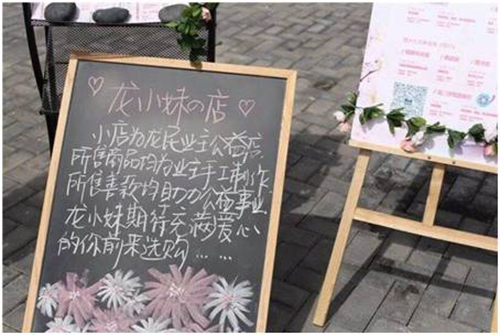 龙小妹の店
小店为龙民业主公益店
所售商品均为业主手工制作
所售善款均助力公益事业
龙小妹期待充满爱心
的你前来选购……